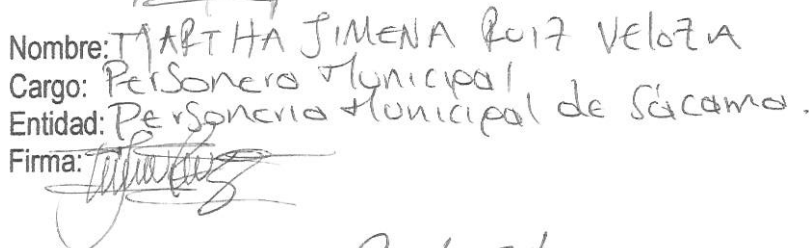 Nombre: MARTHA JIMENA RUIZ VELOZA
Cargo: Personera Municipal
Entidad: Personeria Municipal de Sácama.
Firma: